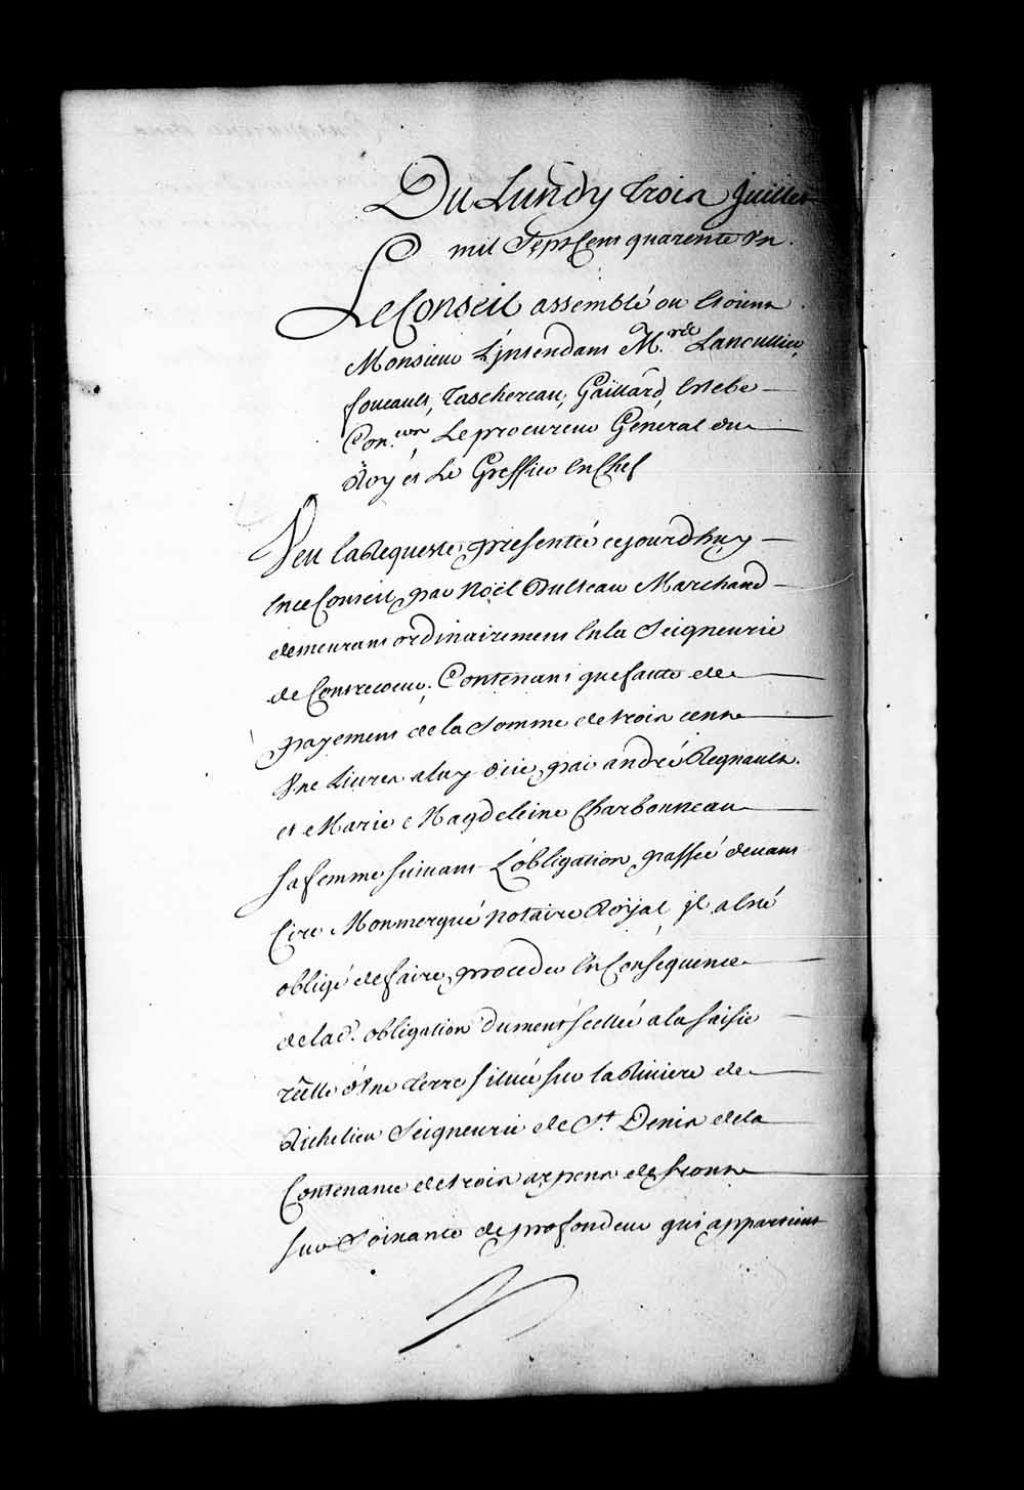 Du Lundy trois Juillet
mil Sept Cens quarente Vn.
Le Conseil assemblé ou Etoient
Monsieur L'jntendant M.rs de Lancullier,
foucault, Taschereau, Gaillard, Estebe
Con.ers Le procureur Général du
Roy et Le Greffier En Chef
Veu la Requeste presentée cejourdhuy
En ce Conseil par Noël Marchand
demeurant ordinairement En la Seigneurie
de Contrecoeur; Contenant que faute de
payement de la Somme de trois cens
Vne Livres a luy düe par andré Regnault
et Marie Magdeleine Charbonneau
sa femme suivant L'obligation passée devant
Monmerqué Notaire Royal jl a Eté
obligé de faire proceder En Consequence
de la d. obligation dument scellée a la saisie
rëelle d'Vne terre située sur la Riviere de
Richelieu Seigneurie de St. Denis de la
Contenance de trois arpens de front
sur Soixante de profondeur qui appartient